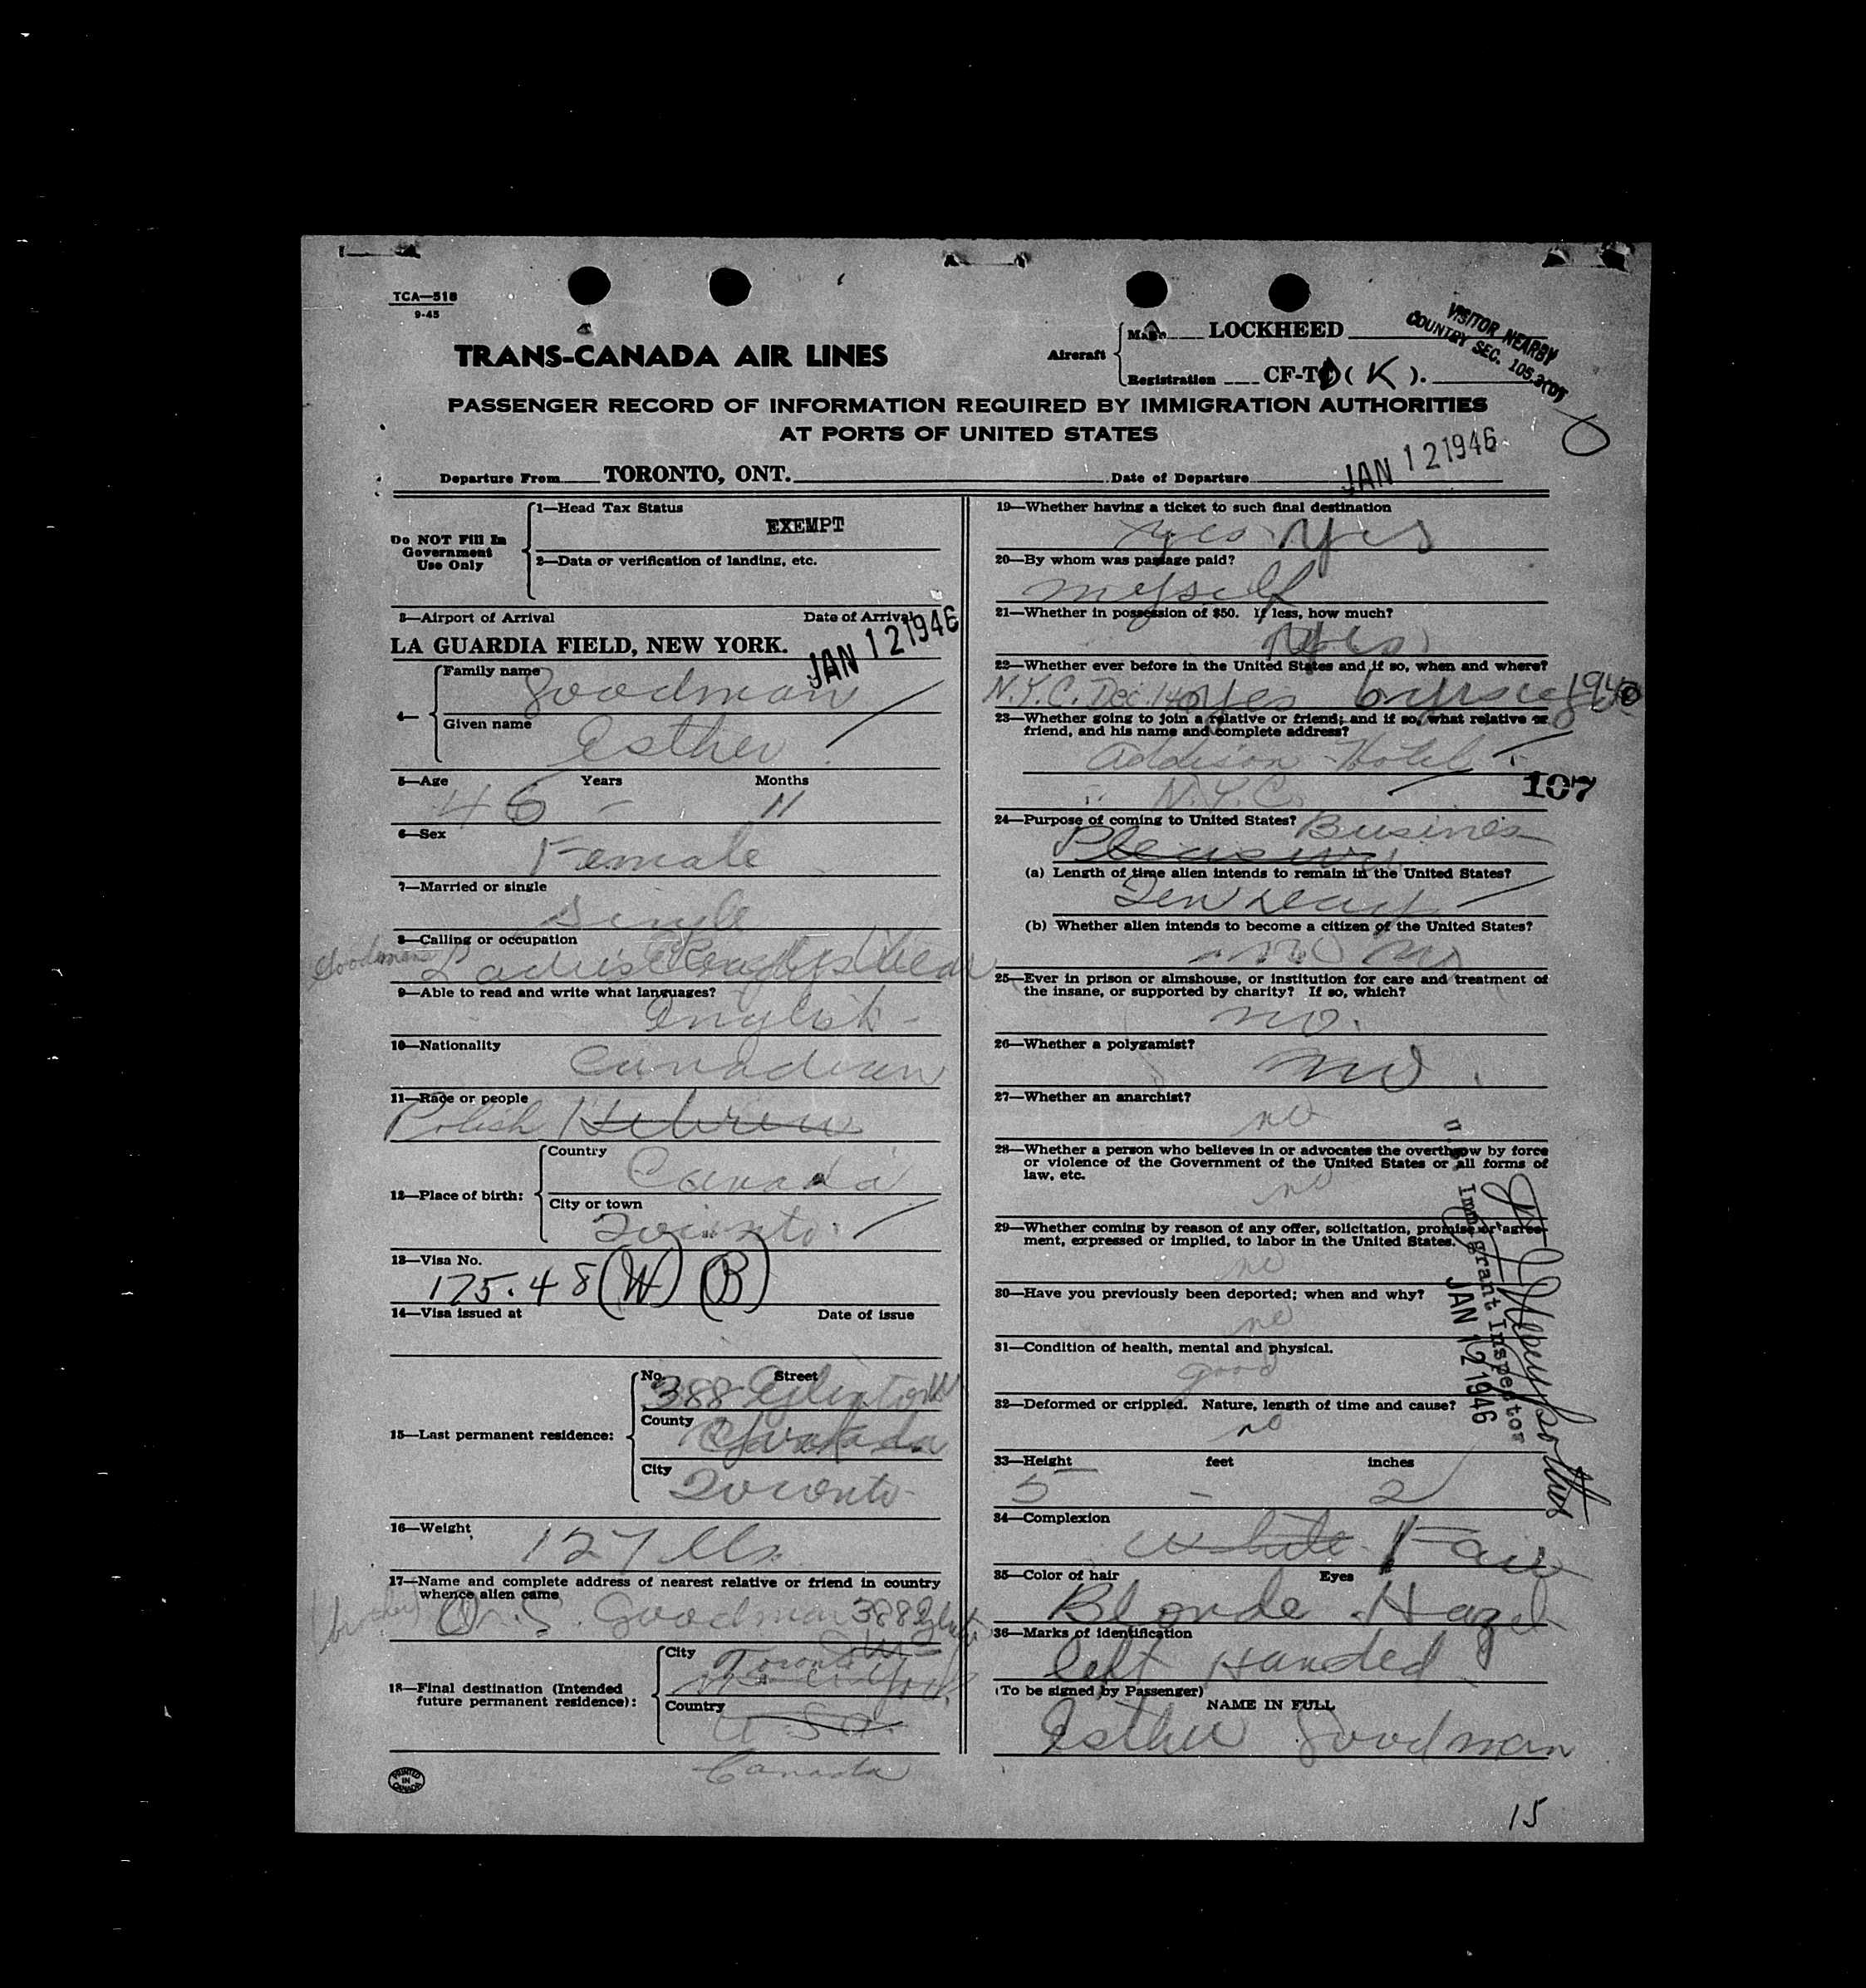 TCA—518
9-45
TRANS-CANADA AIR LINES
Aircraft
Make LOCKHEED
Registration CF-T (K).
VISITOR NEARBY
COUNTRY SEC. 105.3(D)
PASSENGER RECORD OF INFORMATION REQUIRED BY IMMIGRATION AUTHORITIES
AT PORTS OF UNITED STATES
Departure From TORONTO, ONT. Date of Departure JAN 12 1946
Do NOT Fill In
Government
Use Only
1—Head Tax Status
EXEMPT
2—Data or verification of landing, etc.
3—Airport of Arrival Date of Arrival
LA GUARDIA FIELD, NEW YORK. JAN 12 1946
4—
Family name Goodman
Given name Esther
5—Age Years Months
46 - 11
6—Sex
Female
7—Married or single
Single
8—Calling or occupation
Goodmans Ladies Ready Wear
9—Able to read and write what languages?
English
10—Nationality
Canadian
11—Race or people
Polish Hebrew
12—Place of birth:
Country
Canada
City or town
Toronto
13—Visa No.
175.48 (W) (B)
14—Visa issued at Date of issue
15—Last permanent residence:
No. Street
388 Eglinton W
County
Canada
City
Toronto
16—Weight
127 lbs.
17—Name and complete address of nearest relative or friend in country
whence alien came
(brother) Dr. S. Goodman 388 Eglinton
18—Final destination (Intended
future permanent residence):
City
Toronto
New York
Country
U.S.A.
Canada
PRINTED
IN
CANADA
19—Whether having a ticket to such final destination
yes yes
20—By whom was passage paid?
myself
21—Whether in possession of $50. If less, how much?
Yes
22—Whether ever before in the United States and if so, when and where?
N.Y.C. Dec. yes
23—Whether going to join a relative or friend; and if so, what relative or
friend, and his name and complete address?
Addison Hotel
N.Y.C.
107
24—Purpose of coming to United States? Business
Pleasure
(a) Length of time alien intends to remain in the United States?
Ten days
(b) Whether alien intends to become a citizen of the United States?
no no
25—Ever in prison or almshouse, or institution for care and treatment of
the insane, or supported by charity? If so, which?
no.
26—Whether a polygamist?
no
27—Whether an anarchist?
no
28—Whether a person who believes in or advocates the overthrow by force
or violence of the Government of the United States or all forms of
law, etc.
no
29—Whether coming by reason of any offer, solicitation, promise or agree-
ment, expressed or implied, to labor in the United States.
no
30—Have you previously been deported; when and why?
no
31—Condition of health, mental and physical.
good
32—Deformed or crippled. Nature, length of time and cause?
no
Immigrant Inspector
JAN 12 1946
33—Height feet inches
5 - 2
34—Complexion
White Fair
35—Color of hair Eyes
Blonde Hazel
36—Marks of identification
left Handed
(To be signed by Passenger)
NAME IN FULL
Esther Goodman
15